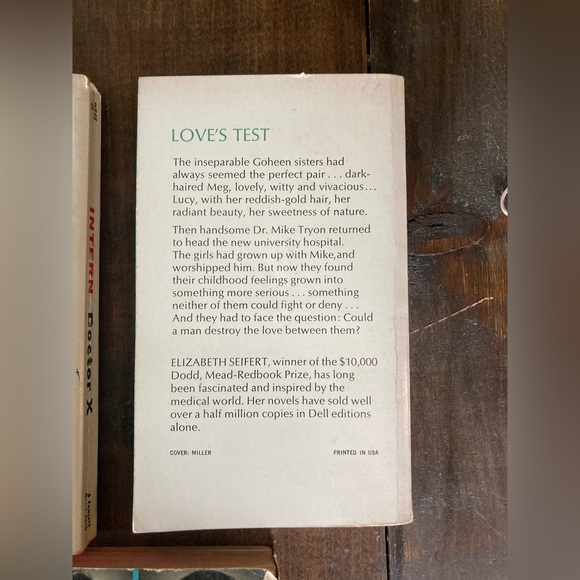 LOVE'S TEST
The inseparable Goheen sisters had
always seemed the perfect pair . . . dark-
haired Meg, lovely, witty and vivacious . . .
Lucy, with her reddish-gold hair, her
radiant beauty, her sweetness of nature.
Then handsome Dr. Mike Tryon returned
to head the new university hospital.
The girls had grown up with Mike,and
worshipped him. But now they found
their childhood feelings grown into
something more serious . . . something
neither of them could fight or deny . . .
And they had to face the question: Could
a man destroy the love between them?
ELIZABETH SEIFERT, winner of the $10,000
Dodd, Mead-Redbook Prize, has long
been fascinated and inspired by the
medical world. Her novels have sold well
over a half million copies in Dell editions
alone.
COVER: MILLER PRINTED IN USA
INTERN Doctor X